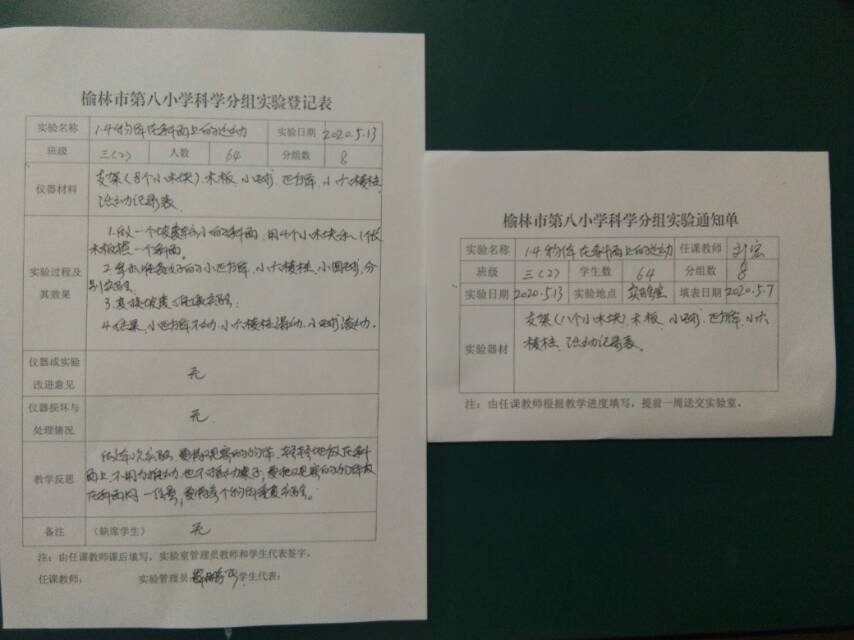 榆林市第八小学科学分组实验登记表
实验名称 1.4物体在斜面上的运动 实验日期 2020.5.13
班级 三(2) 人数 64 分组数 8
仪器材料 支架(8个小木块).木板.小球.正方体.小六棱柱.
活动记录表.
实验过程及其效果
1.做一个坡度较小的斜面.用4个小木块和1张
木板搭一个斜面。
2.拿出准备好的小正方体,小六棱柱,小圆球,分
别实验.
3.变换坡度.继续实验.
4.结果,小正方体不动.小六棱柱滑动.小球滚动.
仪器或实验
改进意见 无
仪器损坏与
处理情况 无.
教学反思
做本次实验,要将观察的物体,轻轻地放在斜
面上,不用力推动.也不挪动桌子,要把观察的物体放
在斜面同一位置,要将每个物体重复实验。
备注 (缺席学生) 无
注:由任课教师课后填写,实验室管理员教师和学生代表签字。
任课教师: 实验管理员 学生代表:
榆林市第八小学科学分组实验通知单
实验名称 1.4.物体在斜面上的运动 任课教师 刘宏
班级 三(2) 学生数 64 分组数 8
实验日期 2020.5.13 实验地点 实验室 填表日期 2020.5.7
实验器材 支架(八个小木块).木板.小球.正方体.小六
棱柱.活动记录表。
注:由任课教师根据教学进度填写,提前一周送交实验室。